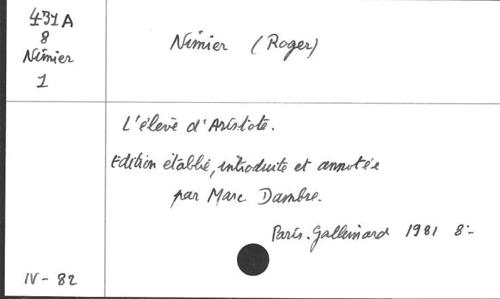 431 A
8
Nimier
1
Nimier (Roger)
L'élève d'Aristote.
Edition établie, introduite et annotée
par Marc Dambre.
Paris. Gallimard 1981 8:-
IV - 82